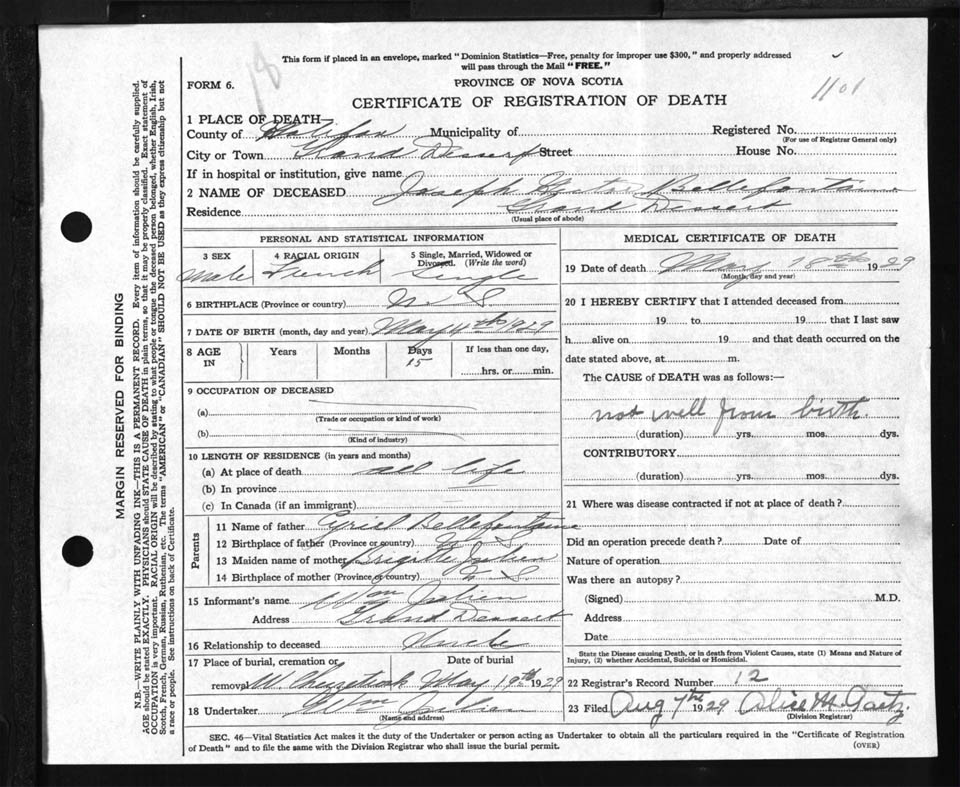 This form if placed in an envelope, marked "Dominion Statistics—Free, penalty for improper use $300," and properly addressed
will pass through the Mail "FREE."
18
1101
FORM 6.
PROVINCE OF NOVA SCOTIA
CERTIFICATE OF REGISTRATION OF DEATH
1 PLACE OF DEATH
County of Halifax Municipality of
Registered No.
(For use of Registrar General only)
City or Town Grand Dessert Street House No.
If in hospital or institution, give name
2 NAME OF DECEASED Joseph Bellefontaine
Residence Grand Dessert
(Usual place of abode)
PERSONAL AND STATISTICAL INFORMATION
3 SEX
Male
4 RACIAL ORIGIN
French
5 Single, Married, Widowed or
Divorced. (Write the word)
Single
6 BIRTHPLACE (Province or country) N. S.
7 DATE OF BIRTH (month, day and year) May 4th 1929
8 AGE
IN
Years Months Days
15
If less than one day,
hrs. or min.
9 OCCUPATION OF DECEASED
(a)
(Trade or occupation or kind of work)
(b)
(Kind of industry)
10 LENGTH OF RESIDENCE (in years and months)
(a) At place of death all life
(b) In province
(c) In Canada (if an immigrant)
Parents
11 Name of father Cyriel Bellefontaine
12 Birthplace of father (Province or country) N. S.
13 Maiden name of mother Brigitte Julien
14 Birthplace of mother (Province or country) N. S.
15 Informant's name Wm Julien
Address Grand Dessert
16 Relationship to deceased Uncle
17 Place of burial, cremation or
removal W. Chezzetcook
Date of burial
May 19th 1929
18 Undertaker Wm Julien
(Name and address)
MEDICAL CERTIFICATE OF DEATH
19 Date of death May 18th 1929
(Month, day and year)
20 I HEREBY CERTIFY that I attended deceased from
19 to 19 that I last saw
h alive on 19 and that death occurred on the
date stated above, at m.
The CAUSE of DEATH was as follows:—
not well from birth.
(duration) yrs. mos. dys.
CONTRIBUTORY
(duration) yrs. mos. dys.
21 Where was disease contracted if not at place of death?
Did an operation precede death? Date of
Nature of operation
Was there an autopsy?
(Signed) M.D.
Address
Date
State the Disease causing Death, or in death from Violent Causes, state (1) Means and Nature of
Injury, (2) whether Accidental, Suicidal or Homicidal.
22 Registrar's Record Number 12
23 Filed Aug 7th 1929 Alice M. Gaetz.
(Division Registrar)
SEC. 46—Vital Statistics Act makes it the duty of the Undertaker or person acting as Undertaker to obtain all the particulars required in the "Certificate of Registration
of Death" and to file the same with the Division Registrar who shall issue the burial permit.
(OVER)
MARGIN RESERVED FOR BINDING
N.B.—WRITE PLAINLY WITH UNFADING INK—THIS IS A PERMANENT RECORD. Every item of information should be carefully supplied.
AGE should be stated EXACTLY. PHYSICIANS should STATE CAUSE OF DEATH in plain terms, so that it may be properly classified. Exact statement of
OCCUPATION is very important. RACIAL ORIGIN will be described by stating to what people or tongue the deceased person belonged, whether English, Irish,
Scotch, French, German, Russian, Ruthenian, etc. The terms "AMERICAN" or "CANADIAN" SHOULD NOT BE USED as they express citizenship but not
a race or people. See instructions on back of Certificate.